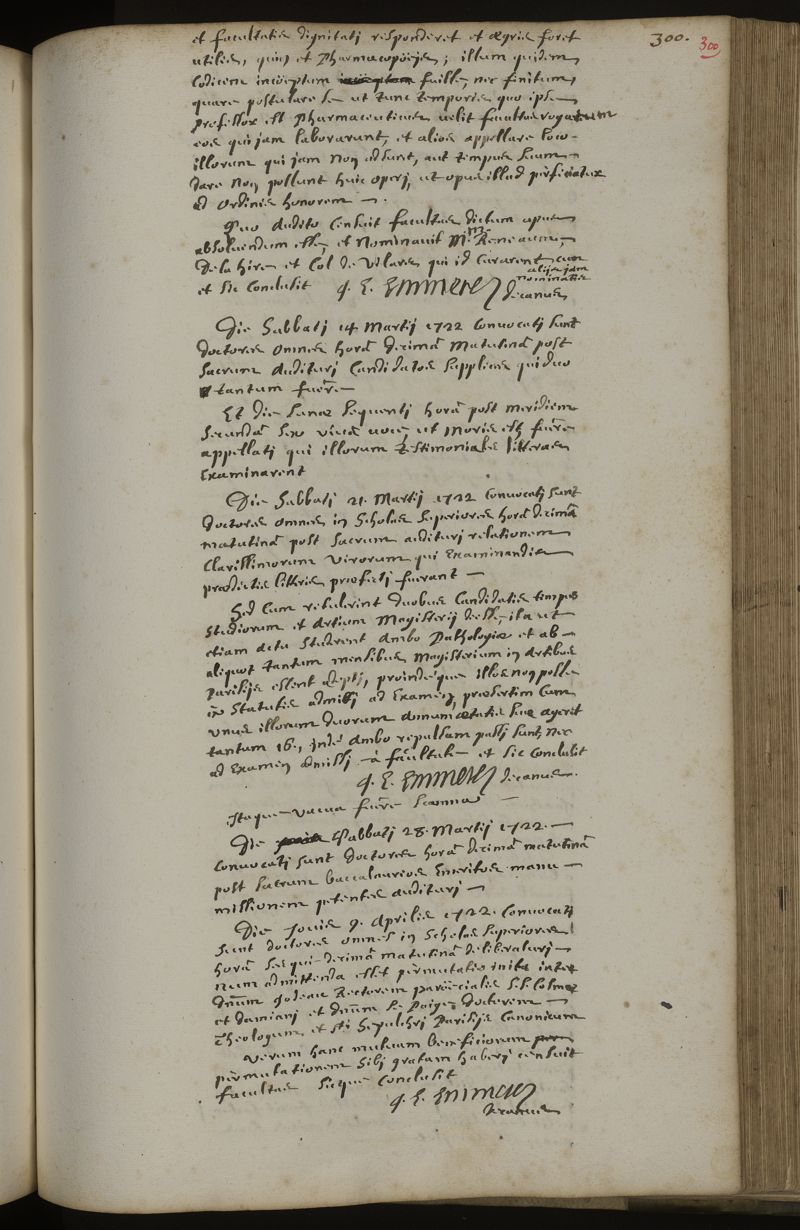 300. 300
et facultatis dignitati responderet et ægris foret
utilis, quin et Pharmacopoeis; illum quidem
codicem inceptum inceptum fuisse, nec finitum,
quare postulare se ut tunc temporis quo ipse
professor est Pharmaceuticus velit facultas rogatum
eos qui jam laborarunt, et alios appellare loco
illorum qui jam non adsunt, aut tempus suum
dare non possunt huic operi, ut opus illud perficiatur
ad ordinis honorem.
Quo audito censuit facultas dictum opus
absolvendum esse, et nominavit Mros Reneaume,
De la hire et Col de Vilars qui id curarent cum
alijs jam
nominatis
et sic conclusit q. E. Emmerez
decanus
Die Sabbati 14. Martij 1722 convocati sunt
doctores omnes horâ decimâ matutinâ post
sacrum audituri Candidatos supplices qui duo
tantum fuêre
Et die lunae sequenti horâ post meridiem
secundâ sex vivâ voce, ut moris est fuêre
appellati qui illorum testimoniales litteras
Examinarent
Die Sabbati 21. Martij 1722 convocati sunt
doctores omnes in Scholas superiores horâ decimâ
matutinâ post sacrum audituri relationem
clarissimorum virorum qui Examinandis
prædictis litteris præfecti fuerant
Sed cum retulerint duobus Candidatis tempus
studiorum et Artium Magisterij deesse, ita ut
etiam actu studerent ambo Pathologiæ et ab
aliquot tantum mensibus Magisterium in artibus
Parisijs essent adepti, proindeque illos non posse
ex Statutis admitti ad Examen, præsertim cum
unus illorum duorum annum ætatis suæ ageret
tantum 16., inde ambo repulsam passi sunt, nec
ad Examen admissi à facultate et sic conclusit
q. E. Emmerez decanus.
Itaque vacua fuêre scamna
Die Sabbati 28. Martij 1722.
convocati sunt doctores horâ decimâ matutinâ
post sacrum baccalaureos Emeritos manu
missionem petentes audituri
Die Jovis 9. Aprilis 1722. convocati
sunt doctores omnes in Scholas superiores
horâ sesqui-decimâ matutinâ deliberaturi
num admittenda esset permutatio inita inter
dnum Godeau Rectorem parœcialis S.S. Cosmæ
et damiani et dnum Le Paige, doctorem
Theologum et Sti Sepulchri Parisijs Canonicum
Verum hanc mutuam beneficiorum
permutationem sibi gratam haberi censuit
facultas sicque conclusit
q. E. Emmerez
decanus